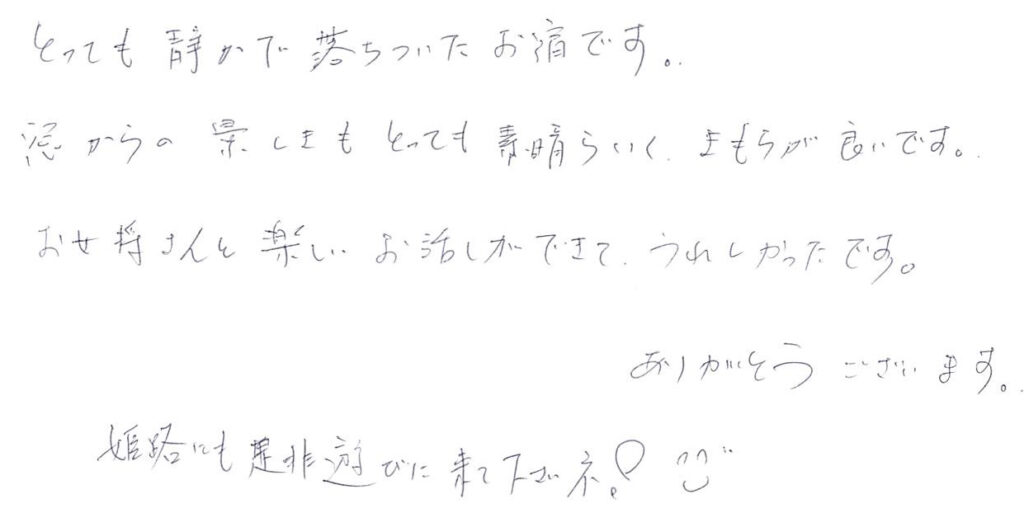 とっても 静かで 落ちついた お宿です。
窓からの 景しきも とっても 素晴らしく、きもちが 良いです。
お女将さんと 楽しい お話しができて、うれしかったです。
ありがとう ございます。
姫路にも 是非 遊びに 来て下さいネ!